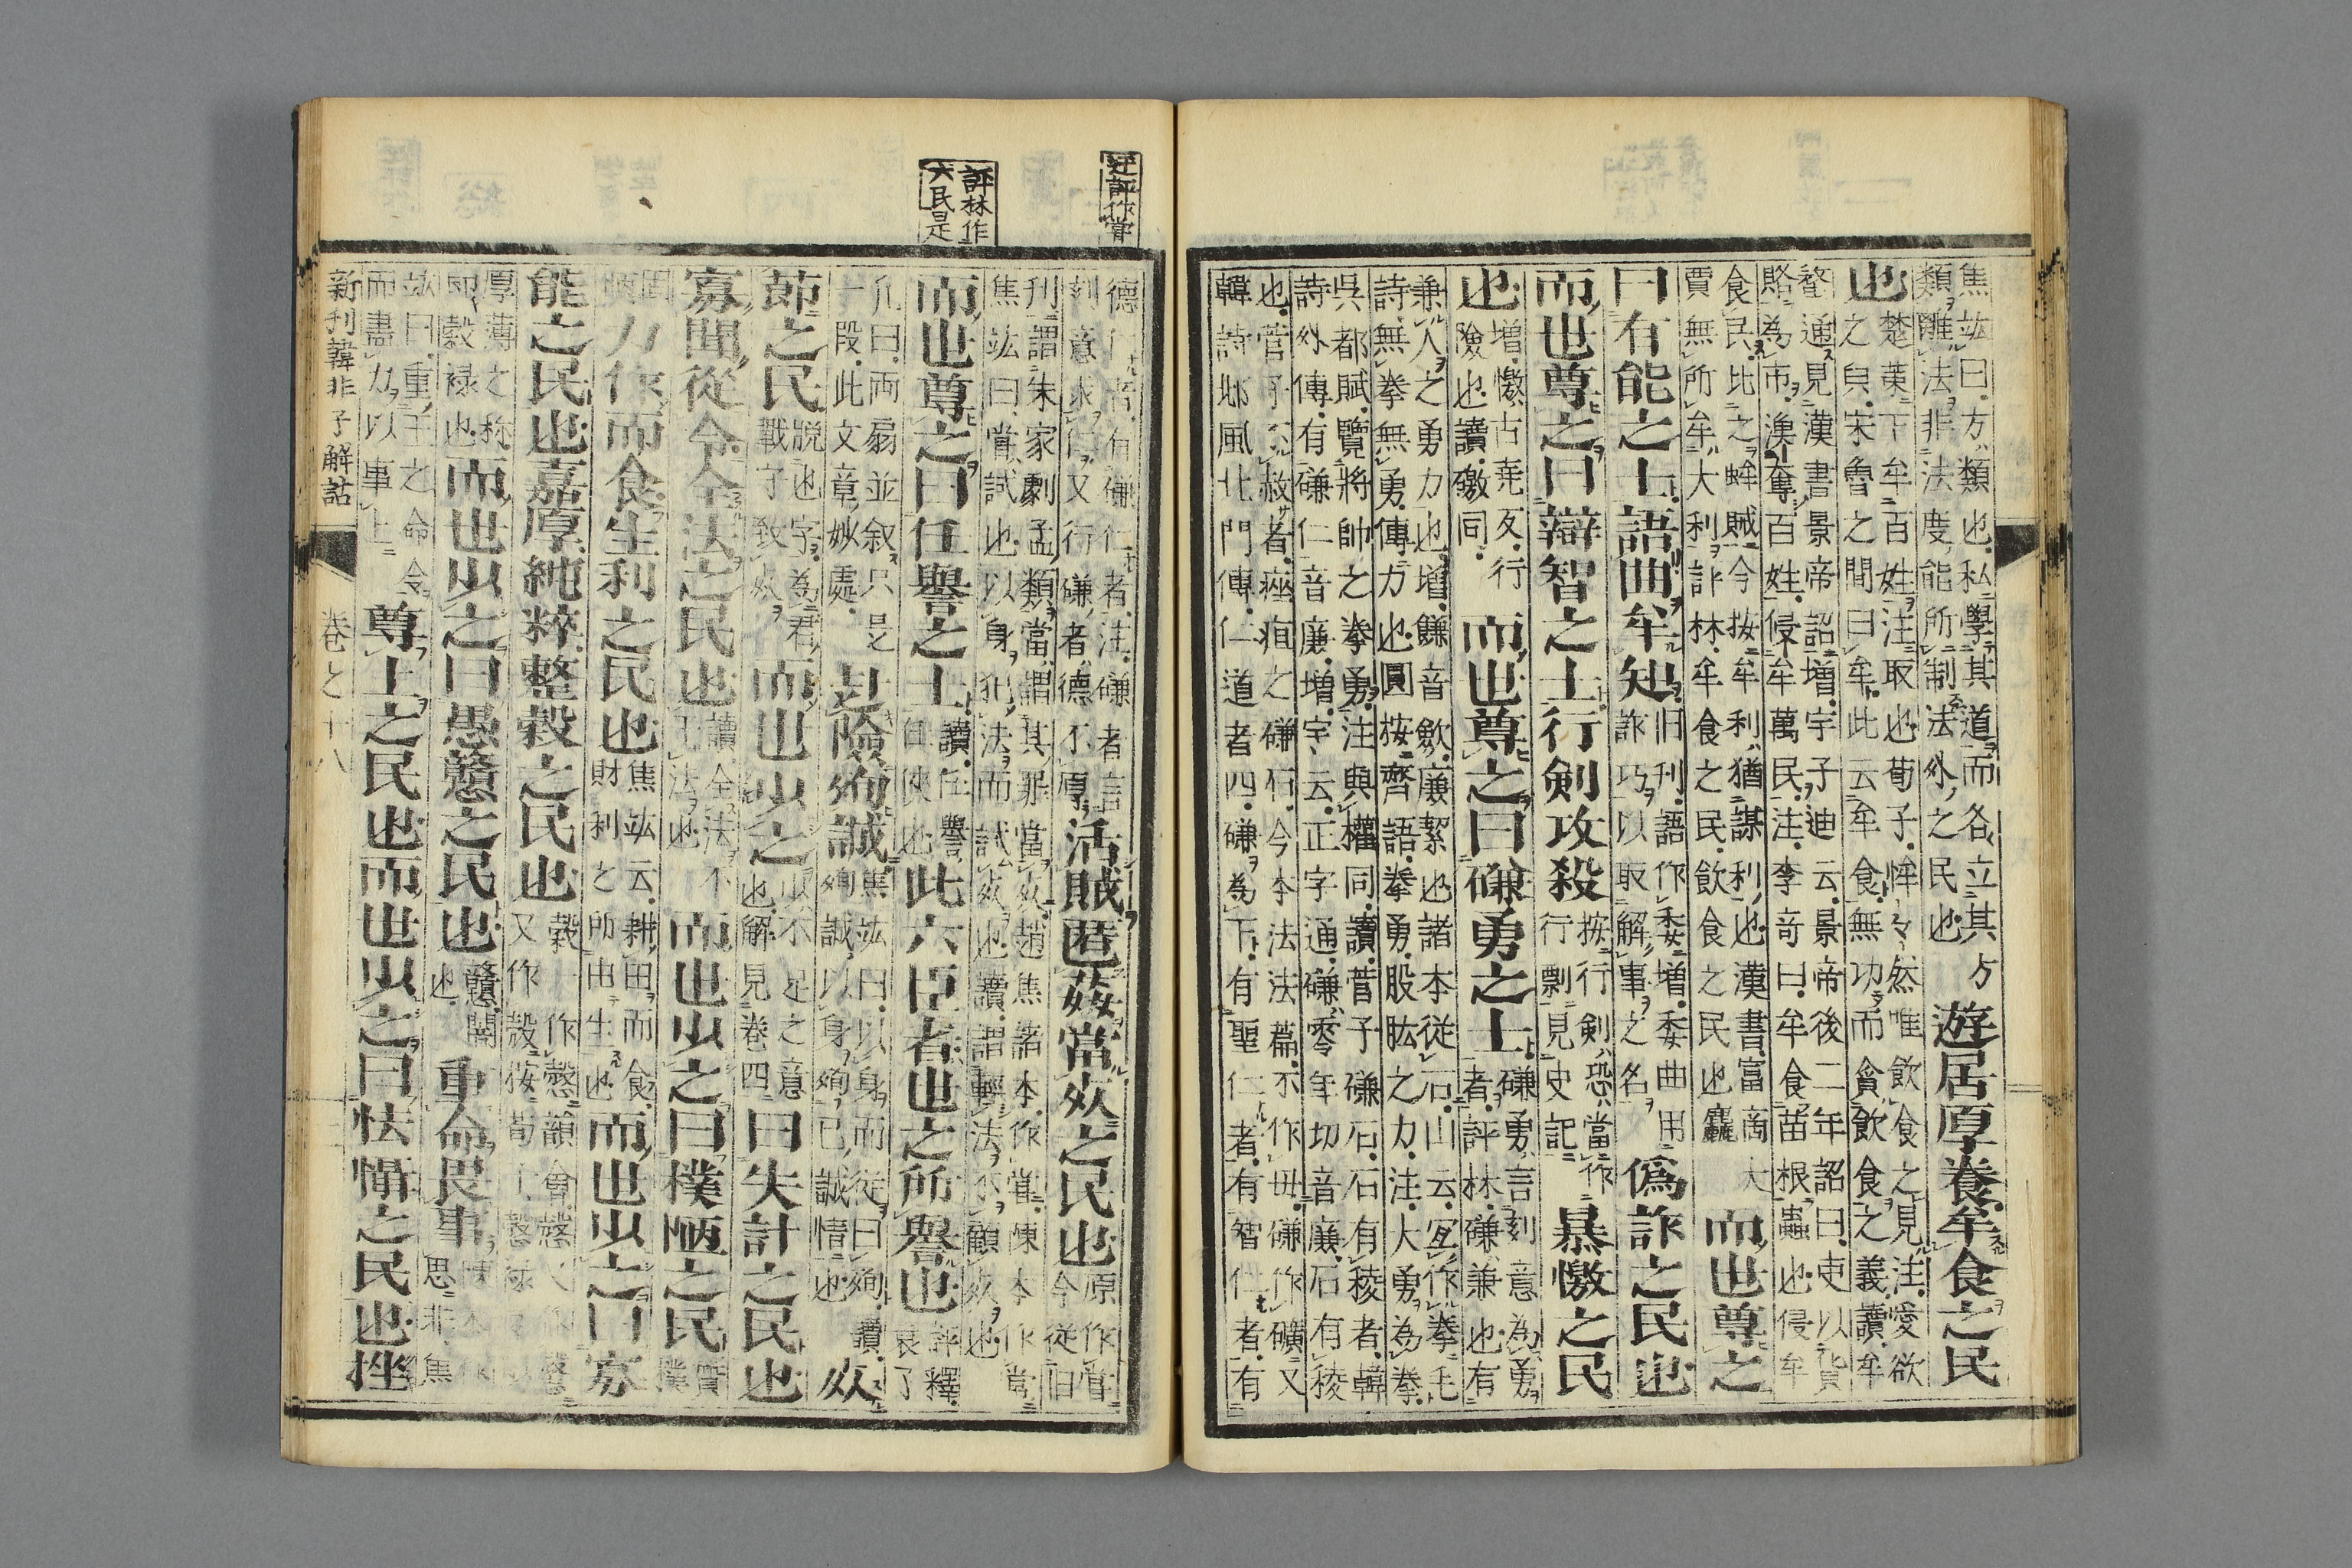 焦竑曰方類也私學其道而各立其方
類雖法非法度能所制法外之民也
遊居厚養牟食之民
也
楚葉下牟百姓注取也荀子恈々然唯飲食之見注愛欲
之皃宋魯之間曰牟此云牟食無功而貪飲食之義讀牟
螯通見漢書景帝詔增字子迪云景帝後二年詔曰吏以貨
賂為市漁奪百姓侵牟萬民注李奇曰牟食苗根蟲也侵牟
食民比之蛑賊今按牟利猶謀利也漢書富商大
賈無所牟大利評林牟食之民飲食之民也麤
而世尊之
曰有能之士語曲牟知
旧刋語作委增委曲用
詐巧以取解事之名
偽詐之民也
而世尊之曰辯智之士行劍攻殺
按行劍恐當作
行剽見史記
暴憿之民
也
增憿古堯反行
險也讀徼同
而世尊之曰磏勇之士
磏勇言刻意為勇
者評林磏兼也有
兼人之勇力也增䭑音歉廉絜也諸本従石山云宜作拳毛
詩無拳無勇傳力也圓按齊語拳勇股肱之力注大勇為拳
呉都賦覽將帥之拳勇注與權同讀菅子磏石石有稜者韓
詩外傳有磏仁音廉增字云正字通磏零年切音廉石有稜
也菅子不赦者痤疽之磏石今本法法篇不作毋磏作礦又
韓詩邶風北門傳仁道者四磏為下有聖仁者有智仁者有
評作當
評林作
大民是
德仁者有磏仁者注磏者言
刻意求仁又行磏者德不厚
活賊匿姦當死之民也
原作甞
今従旧
刋謂朱家劇孟類當謂其罪當死趙焦諸本作甞陳本作當
焦竑曰嘗試也以身犯法而試死也讀謂輕法不顧死也
而世尊之曰任譽之士
讀任譽
俱俠也
此六臣者世之所譽也
評釋
衰了
凢曰兩扇並叙只是
一段此文章妙處
赴險殉誠
焦竑曰以身而従曰殉讀
殉誠以身殉已誠情也
死
節之民
脫也字為君
戰了致死
而世少之
少不足之意
也解見巻四
曰失計之民也
寡聞從令全法之民也
讀全法不
犯法也
而世少之曰樸陋之民
實
樸
固
陋
力作而食生利之民也
焦竑云耕田而食
財利之所由生也
而世少之曰寡
能之民也嘉厚純粹整穀之民也
厚薄之称
即穀禄也
而世少之曰愚戇之民也
戇闇
也
重命畏事
陳本作
思非焦
竑曰重王之命令
而盡力以事上
尊上之民也而世少之曰怯懾之民也挫
新刋韓非子解詁
巻之十八